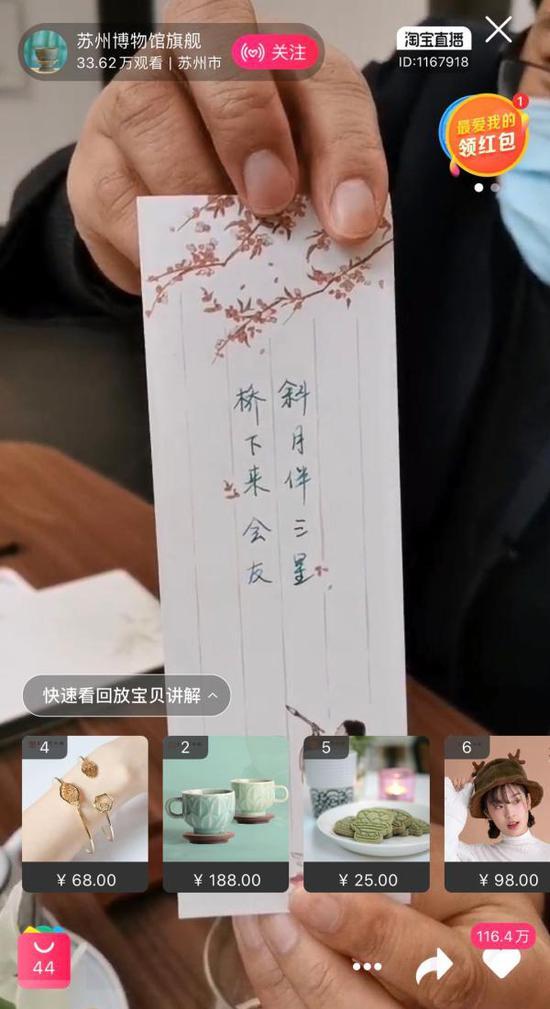 苏州博物馆旗舰
33.62万观看 | 苏州市
关注
淘宝直播
ID:1167918
最爱我的
领红包
1
斜月伴三星
桥下来会友
快速看回放宝贝讲解
4
2
5
6
¥ 68.00
¥ 188.00
¥ 25.00
¥ 98.00
44
116.4万